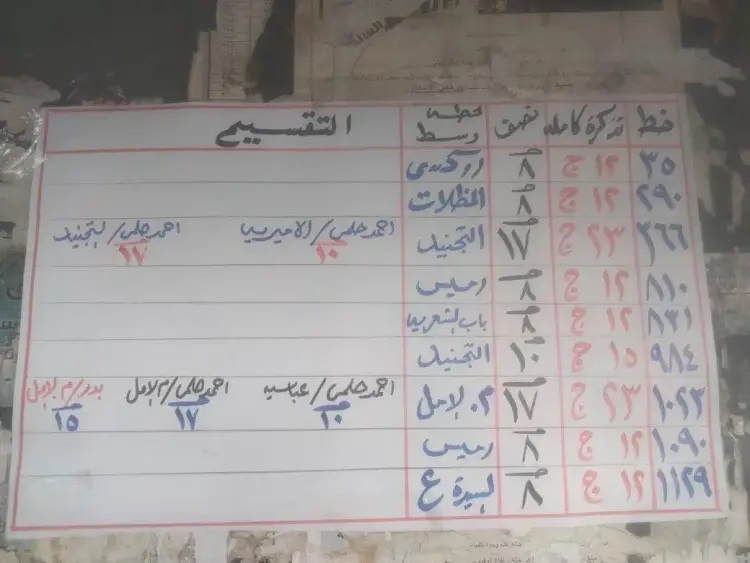 خط تذكرة كامله نصف محطه وسط التقسيم
٣٥ ١٢ ج ٨ روكسى
٢٩٠ ١٢ ج ٨ المظلات
٣٦٦ ٢٣ ج ١٧ التجنيد احمد حلمى / الاميريه ١٠ احمد حلمى / التجنيد ١٧
٨١٠ ١٢ ج ٨ رمسيس
٨٣١ ١٢ ج ٨ باب الشعريه
٩٨٤ ١٥ ج ١٠ التجنيد
١٠٢٣ ٢٣ ج ١٧ م. الامل احمد حلمى / عباسيه ١٠ احمد حلمى / م الامل ١٧ بدر / م الامل ١٥
١٠٩٠ ١٢ ج ٨ رمسيس
١١٢٩ ١٢ ج ٨ السيدة ع